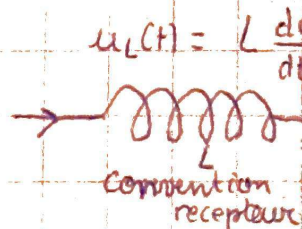 u_L(t) = L d
dt
L
Convention
recepteur